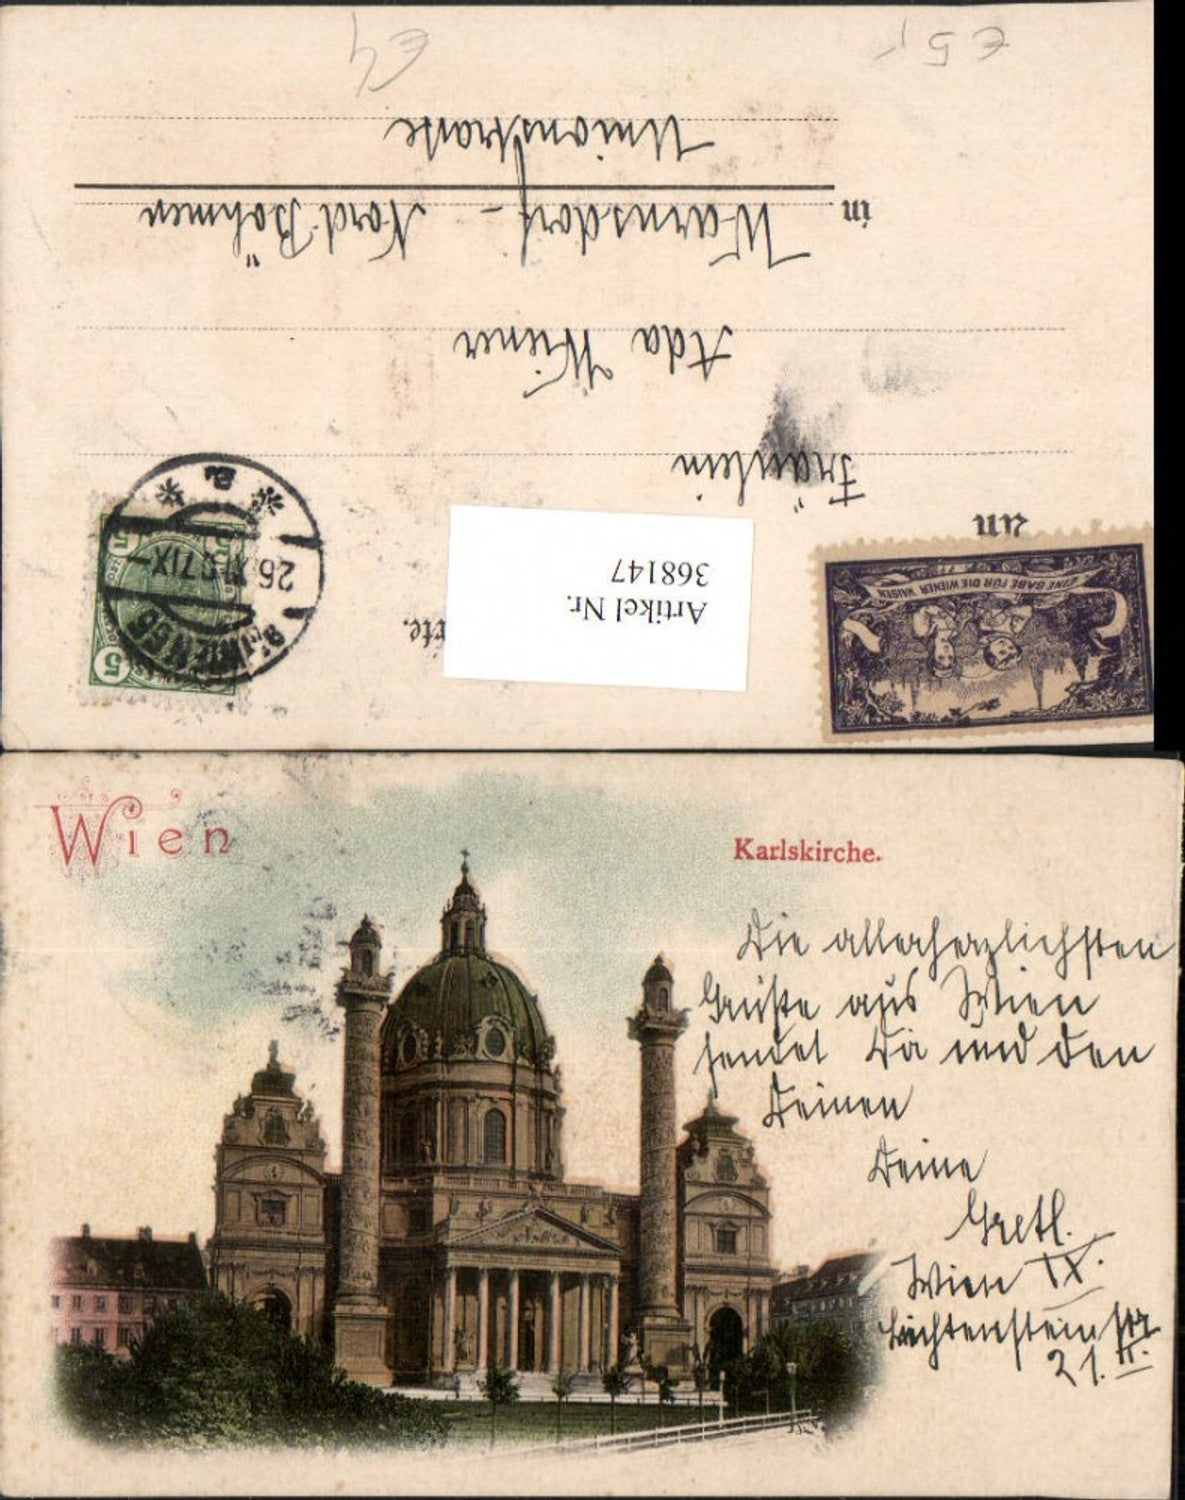 € 5,-
€ 4
rte.
Artikel Nr.
368147
EINE GABE FÜR DIE WIENER WAISEN
5
5
5
WIEN 66
26.XI.07.IX-
* 2a *
An
Fräulein
Ada Wiener
in Warnsdorf - Nord Böhmen
Unionstrasse
Wien
Karlskirche.
Die allerherzlichsten
Grüße aus Wien
sendet Dir und den
Deinen
Deine
Gretl.
Wien IX.
Liechtensteinstr
21. II.